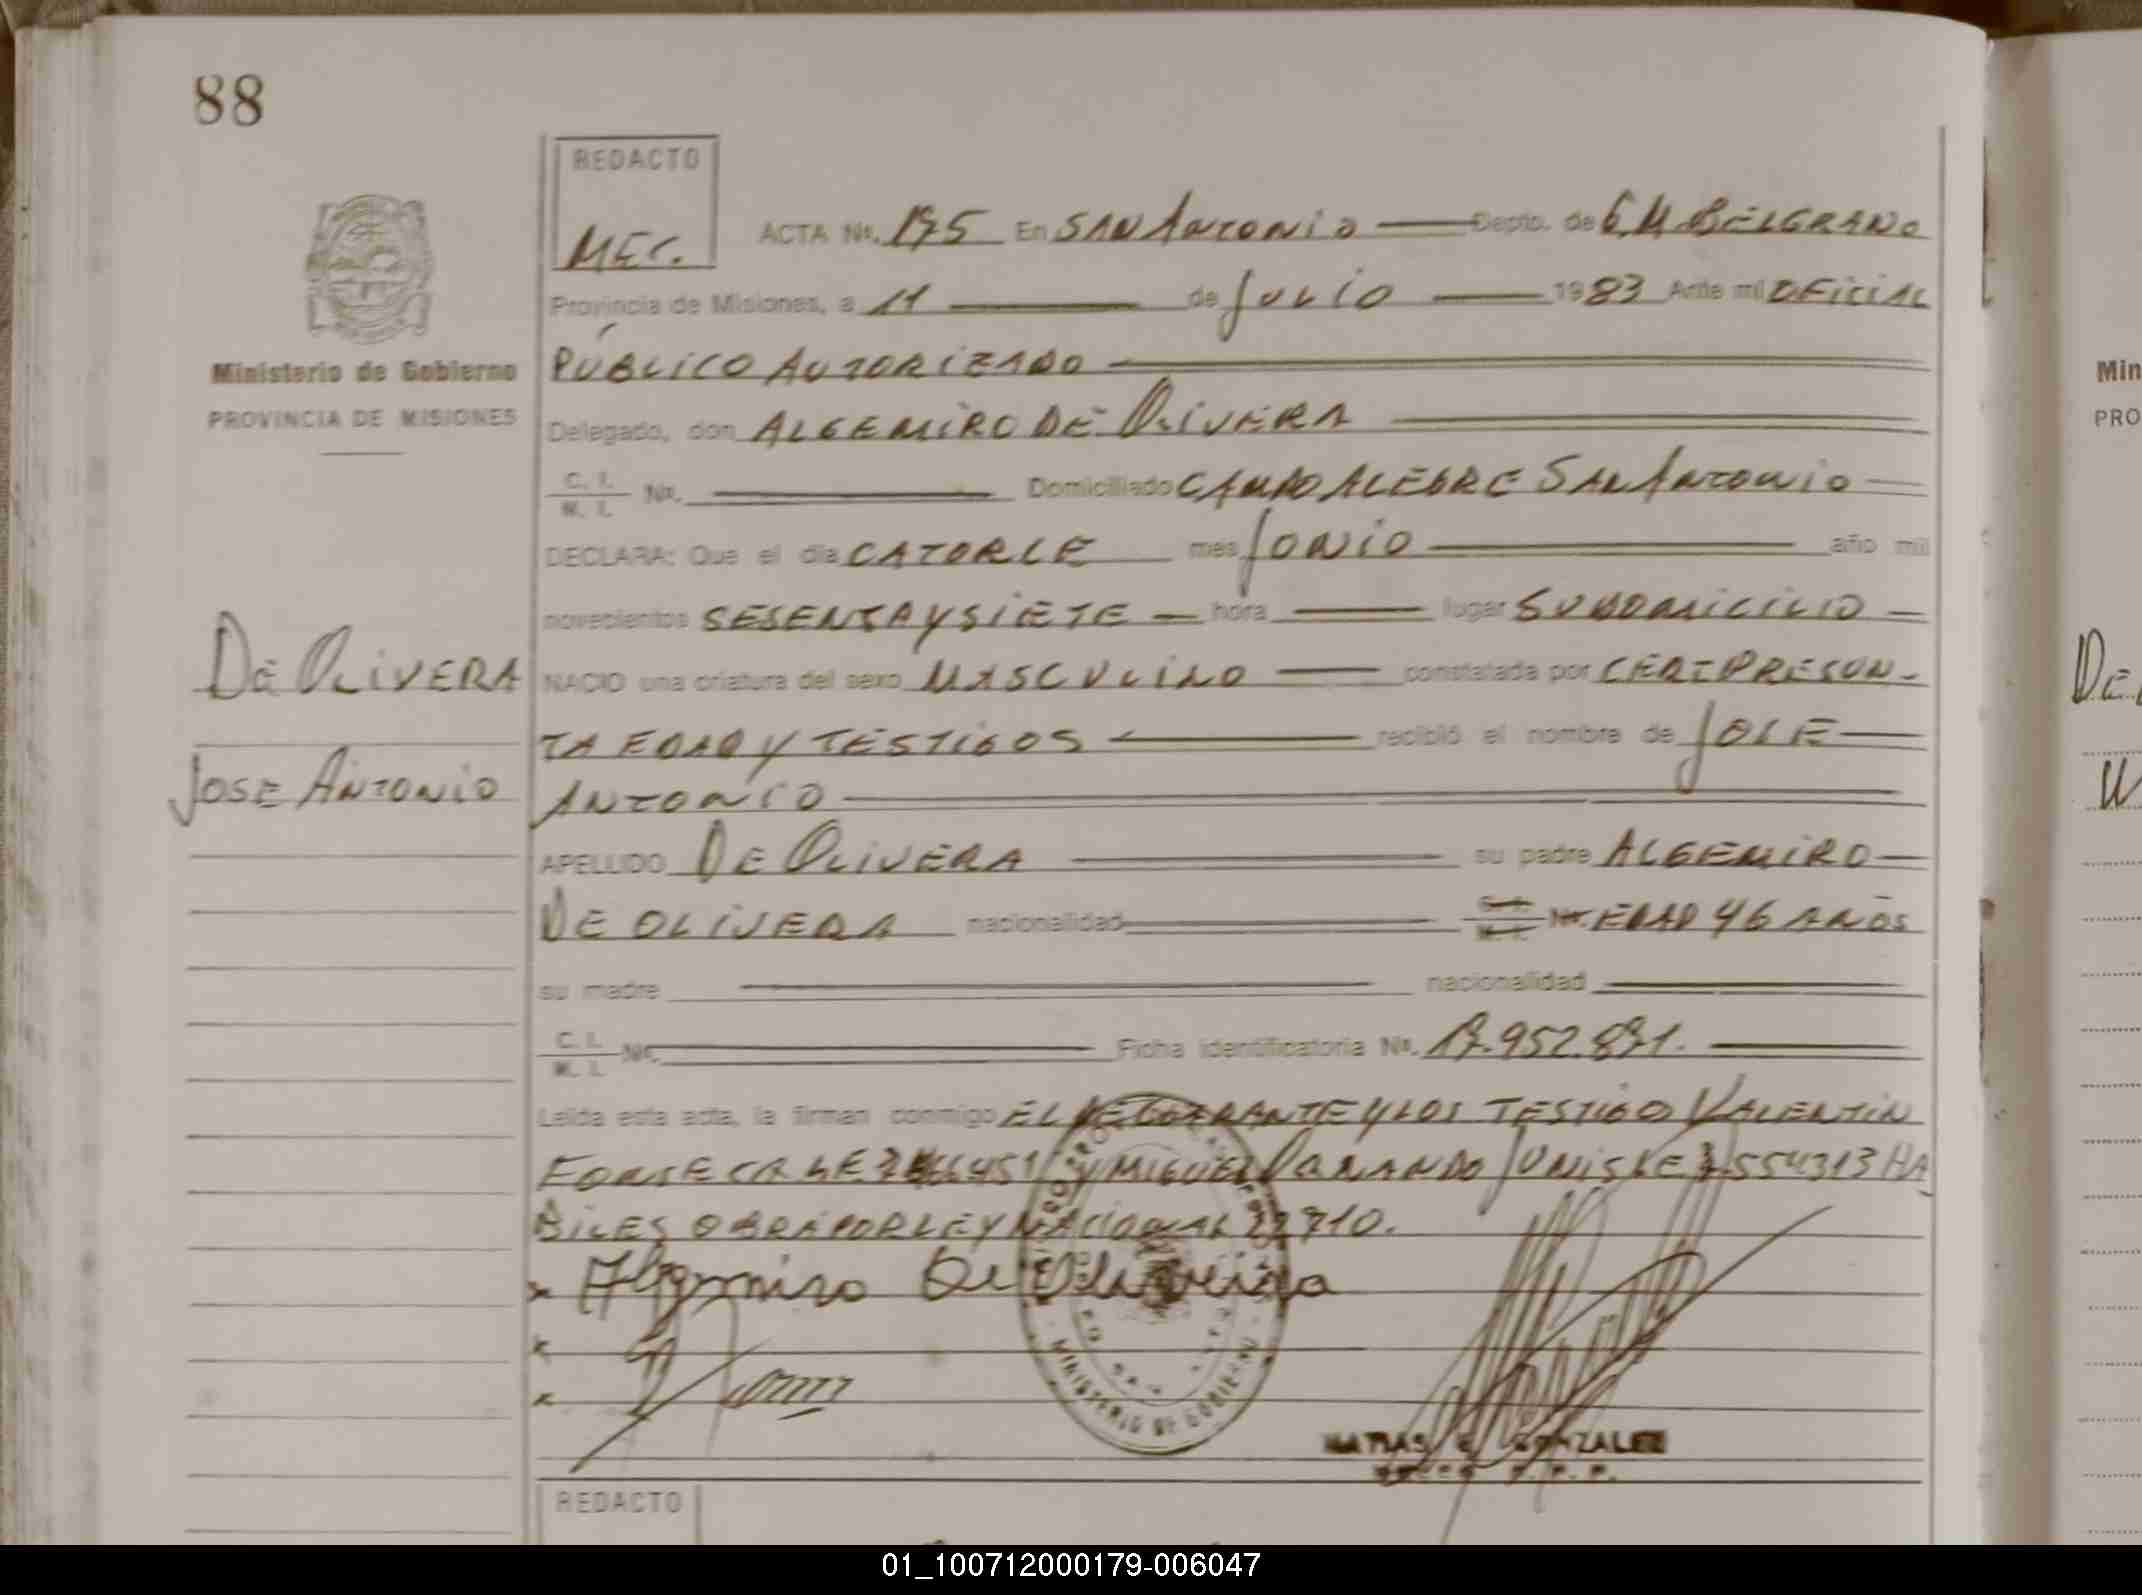 88
REDACTO
MEC.
ACTA Nº. 175 En SAN ANTONIO Depto. de G. M. BELGRANO
Provincia de Misiones, a 11 de JULIO 1983 Ante mi OFICIAL
PÚBLICO AUTORIZADO
Ministerio de Gobierno
PROVINCIA DE MISIONES
Delegado, don ALGEMIRO DE OLIVERA
C. I.
M. I. Nº. Domiciliado CAMPO ALEGRE SAN ANTONIO
DECLARA: Que el día CATORCE mes JUNIO año mil
novecientos SESENTA Y SIETE hora lugar SU DOMICILIO
DE OLIVERA
NACIO una criatura del sexo MASCULINO constatada por CERT PRESUN-
TA EDAD Y TESTIGOS recibió el nombre de JOSE
JOSE ANTONIO
ANTONIO
APELLIDO DE OLIVERA su padre ALGEMIRO
DE OLIVERA nacionalidad Nº. EDAD 46 AÑOS
su madre nacionalidad
C. I.
M. I. Nº. Ficha identificatoria Nº. 17.952.871.
Leída esta acta, la firman conmigo EL DECLARANTE Y LOS TESTIGO VALENTIN
FONSECA Y MIGUEL 7554313 HA
BILES OBRA POR LEY NACIONAL 22710.
x Algemiro De Oliveira
x
x
MINISTERIO DE GOBIERNO
MATIAS GONZALEZ
REDACTO
Min
PRO
De
01_100712000179-006047